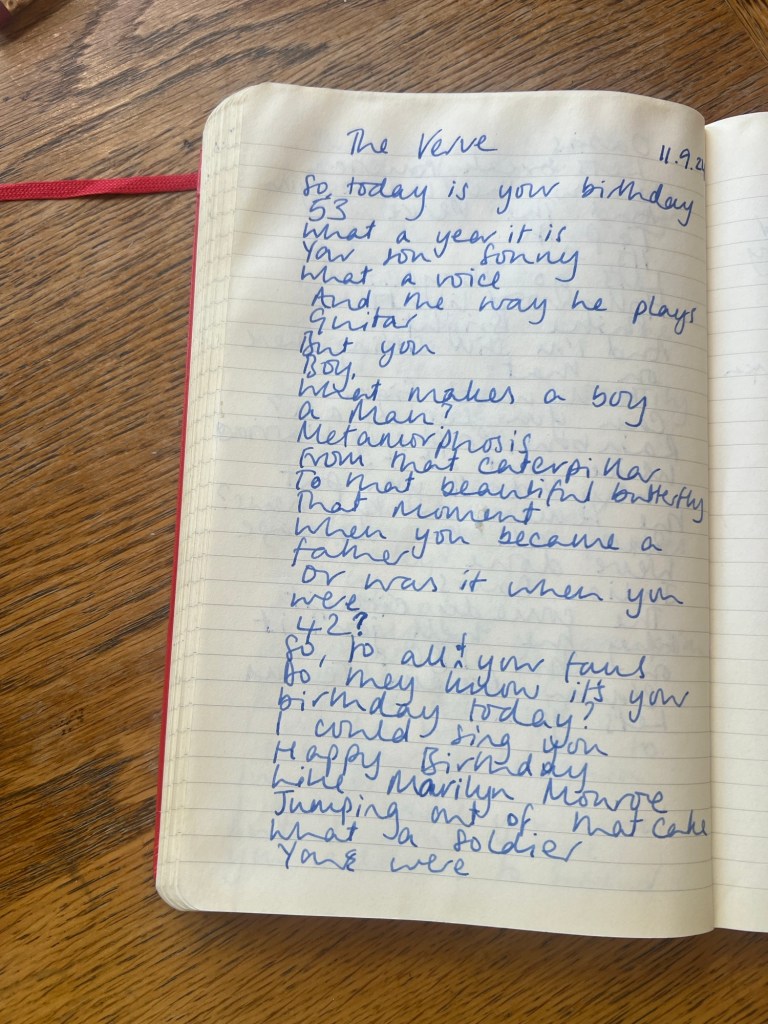 The Verve
11.9.24
So, today is your birthday
53
What a year it is
Your son Sonny
What a voice
And the way he plays
guitar
But you
Boy,
What makes a boy
a Man?
Metamorphosis
From that caterpillar
To that beautiful butterfly
That moment
When you became a
father
Or was it when you
were
42?
So, to all your fans
Do they know it's your
birthday today?
I could sing you
Happy Birthday
Like Marilyn Monroe
Jumping out of that cake
What a soldier
You were